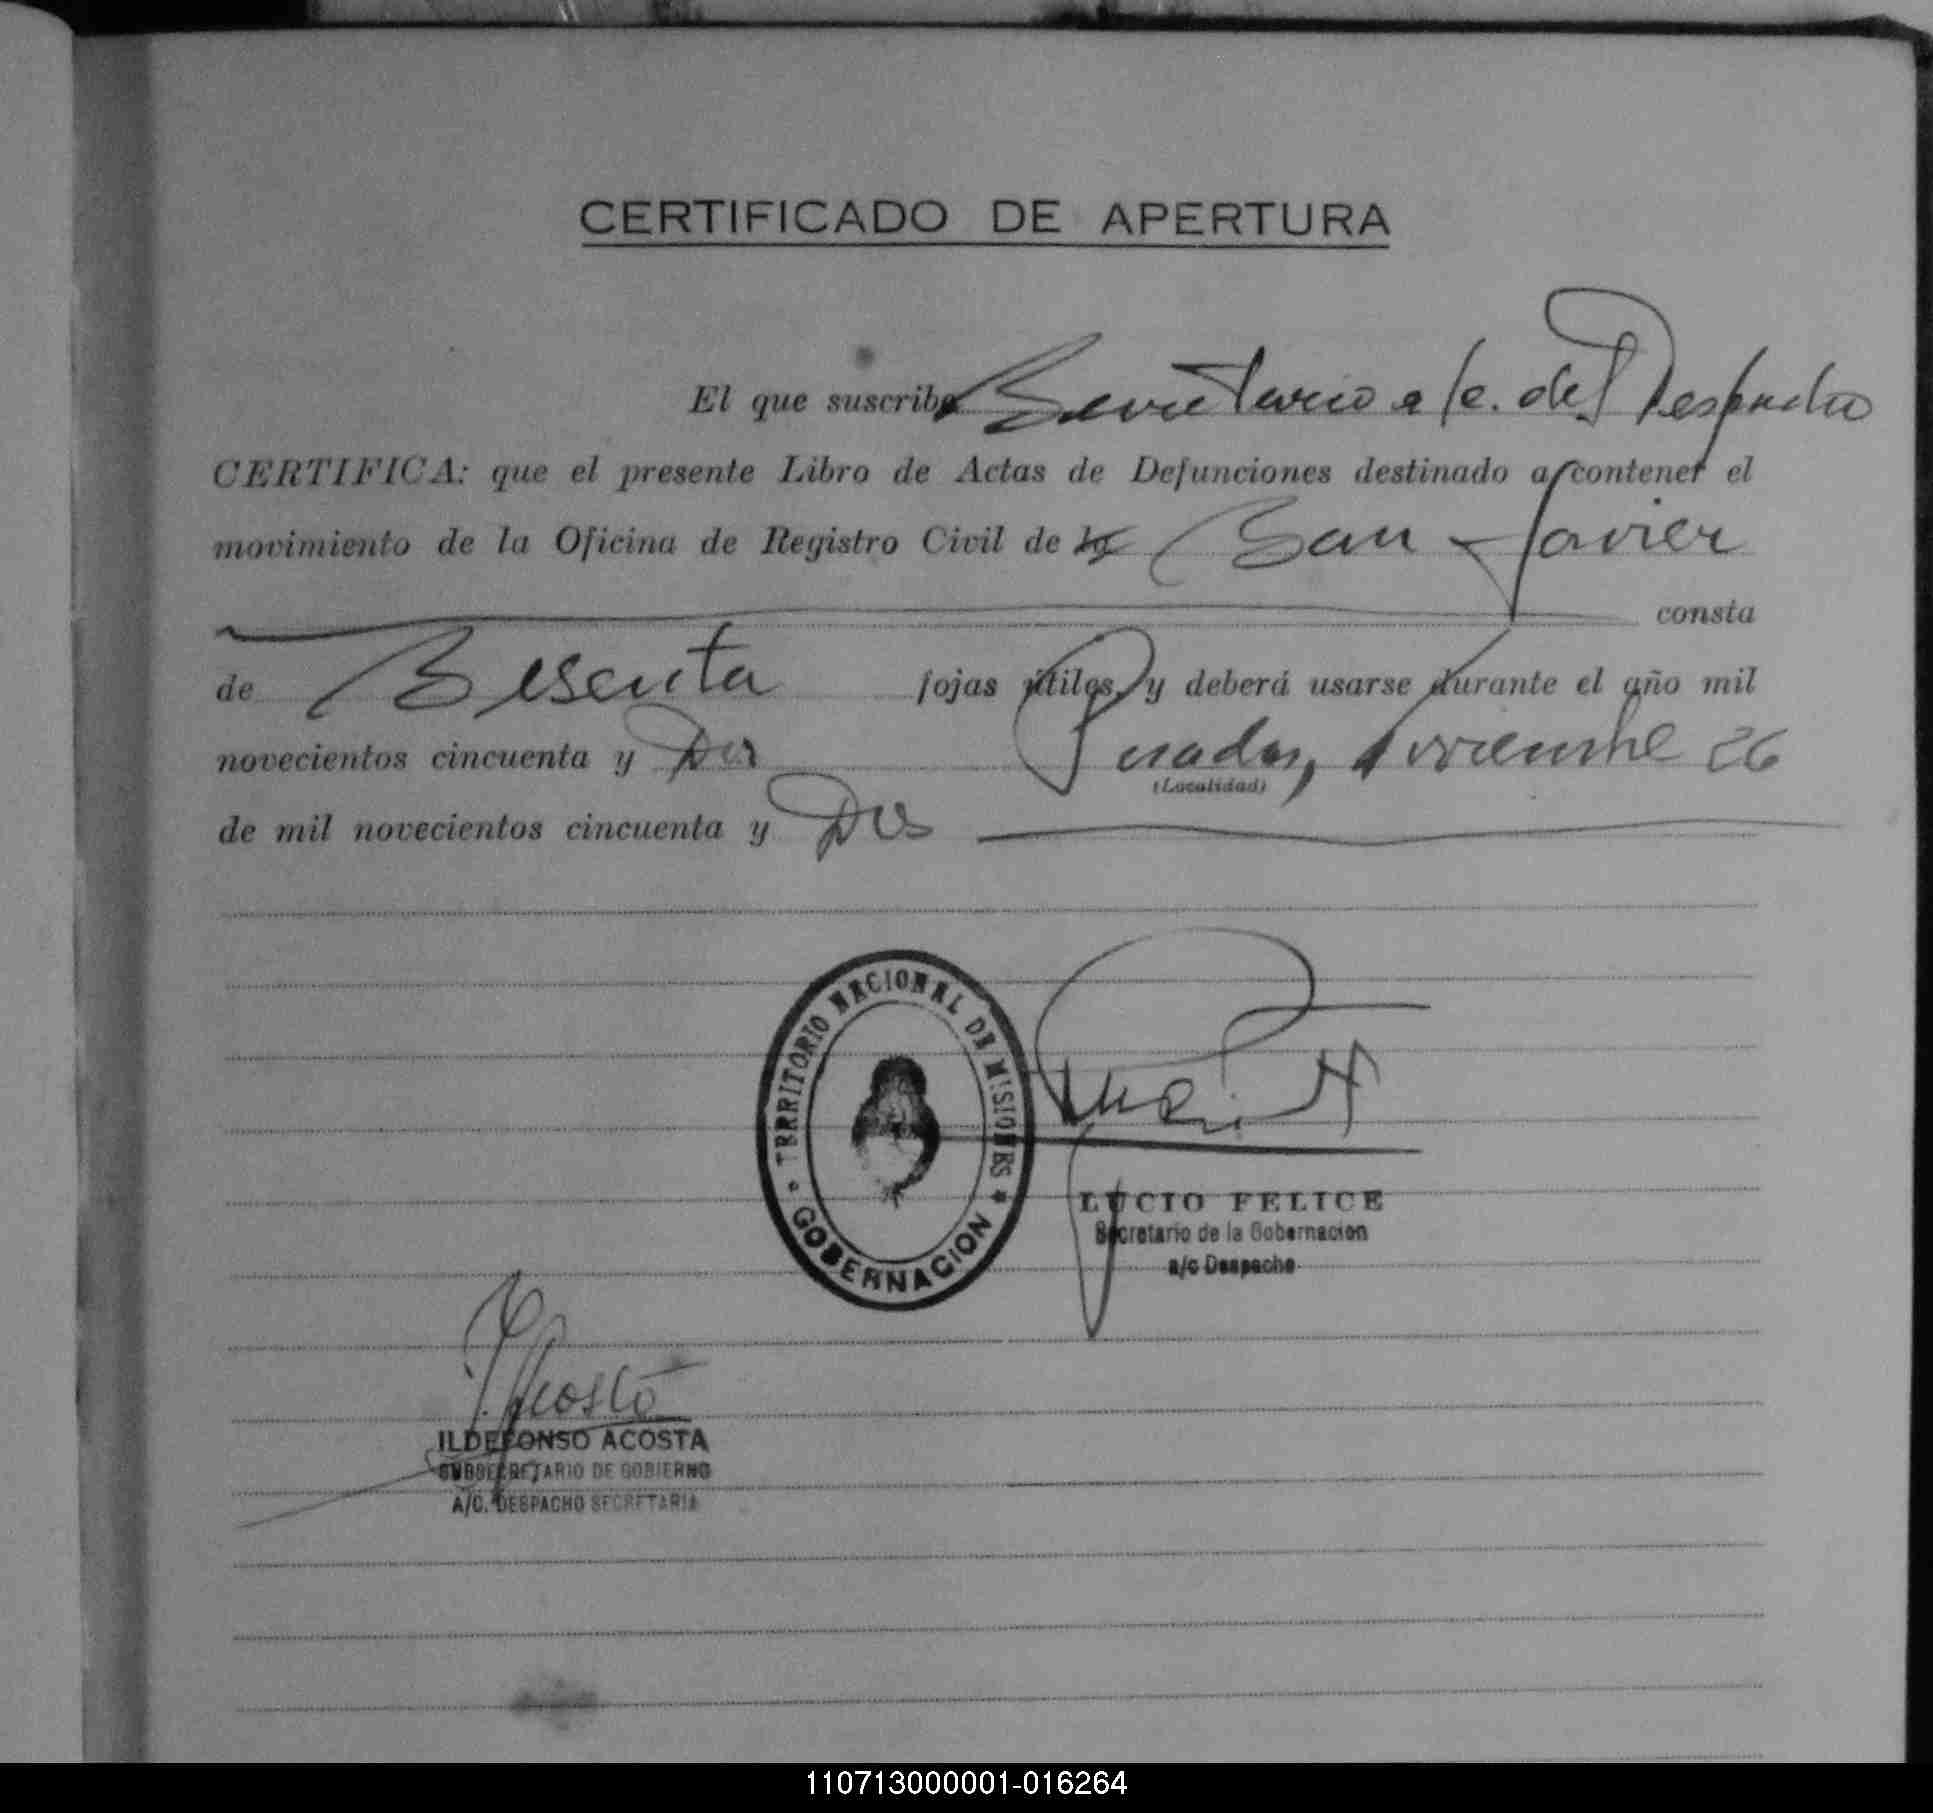 CERTIFICADO DE APERTURA
El que suscribe Secretario a/c. del Despacho
CERTIFICA: que el presente Libro de Actas de Defunciones destinado a contener el
movimiento de la Oficina de Registro Civil de la San Javier
consta
de Sesenta fojas útiles, y deberá usarse durante el año mil
novecientos cincuenta y Dos Posadas, Noviembre 26
(Localidad)
de mil novecientos cincuenta y Dos
TERRITORIO NACIONAL DE MISIONES
GOBERNACION
LUCIO FELICE
Secretario de la Gobernacion
a/c Despacho
I. Acosta
ILDEFONSO ACOSTA
SUBSECRETARIO DE GOBIERNO
A/C. DESPACHO SECRETARIA
110713000001-016264